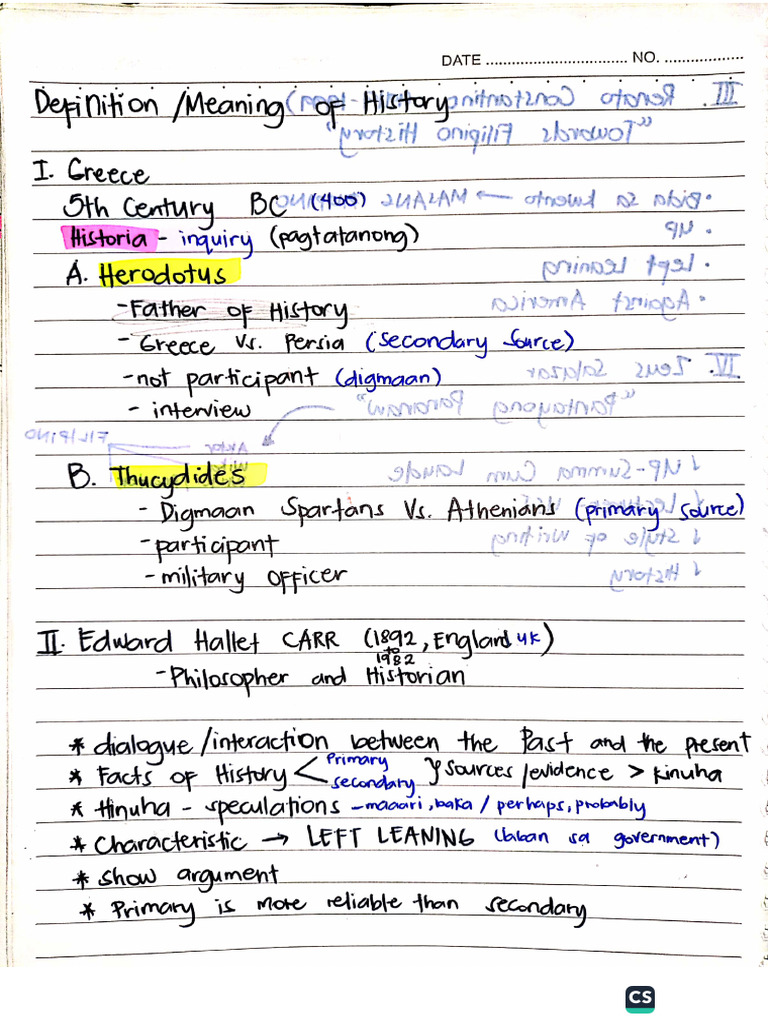 DATE ................................ NO. ..................
Definition / Meaning of History
I. Greece
5th Century BC (400)
Historia - inquiry (pagtatanong)
A. Herodotus
- Father of History
- Greece Vs. Persia (Secondary Source)
- not participant (digmaan)
- interview
B. Thucydides
- Digmaan Spartans Vs. Athenians (primary source)
- participant
- military officer
II. Edward Hallet CARR (1892 to 1982, England UK)
- Philosopher and Historian
* dialogue / interaction between the Past and the present
* Facts of History < Primary secondary } sources / evidence > kinuha
* Hinuha - speculations - maaari, baka / perhaps, probably
* Characteristic → LEFT LEANING (laban sa government)
* show argument
* Primary is more reliable than secondary
CS